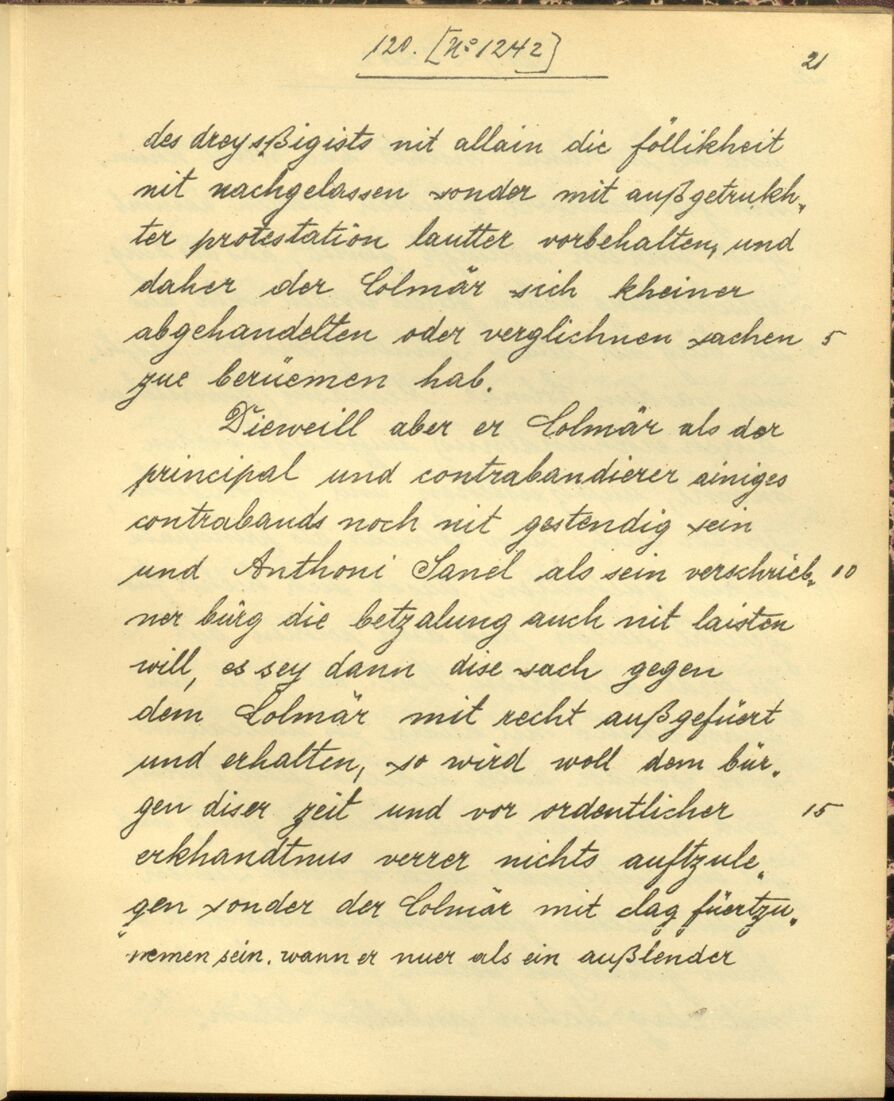 120. [No 1242]
21
des dreyssßigists nit allain die föllikheit
nit nachgelassen sonder mit außgetrukh„
ter protestation lautter vorbehalten, und
daher der Colmär sich kheiner
abgehandelten oder verglichnen sachen 5
zue berüemen hab.
Dieweill aber er Colmär als der
principal und contrabandierer ainiges
contrabands noch nit gestendig sein
und Anthoni Sanel als sein verschrieb„ 10
ner bürg die betzalung auch nit laisten
will, es sey dann dise sach gegen
dem Colmär mit recht außgefüert
und erhalten, so wird woll dem bür„
gen diser zeit und vor ordentlicher 15
erkhandtnus verrer nichts auftzule„
gen sonder der Colmär mit clag füertzu„
nemen sein. wann er nuer als ein außlender